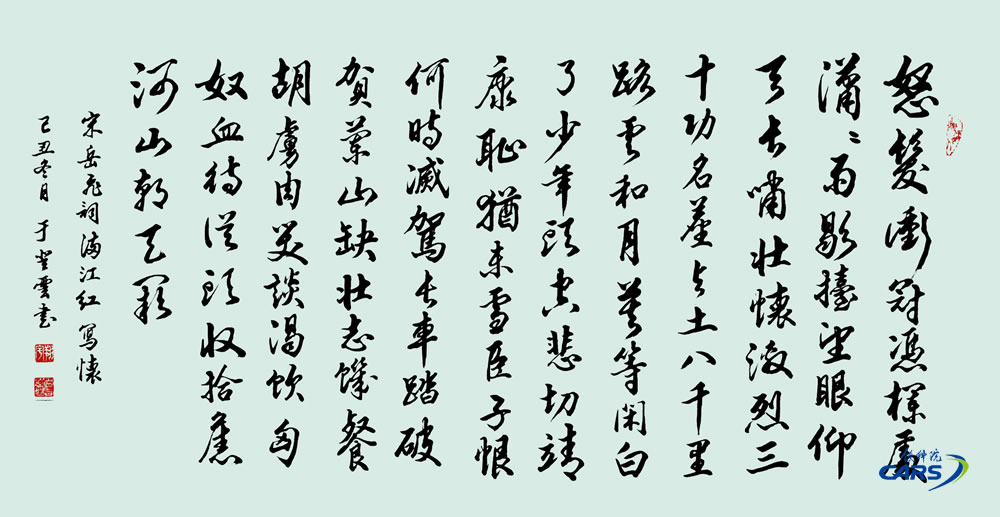 怒髮衝冠憑欄處
瀟〻雨歇擡望眼仰
天長嘯壯懷激烈三
十功名塵与土八千里
路雲和月莫等闲白
了少年頭空悲切靖
康恥猶未雪臣子恨
何時滅駕長車踏破
賀蘭山缺壯志饑餐
胡虜肉笑談渴飲匈
奴血待從頭收拾舊
河山朝天闕
宋岳飛詞滿江红寫懷
己丑冬月于登雲書
科院
CARS